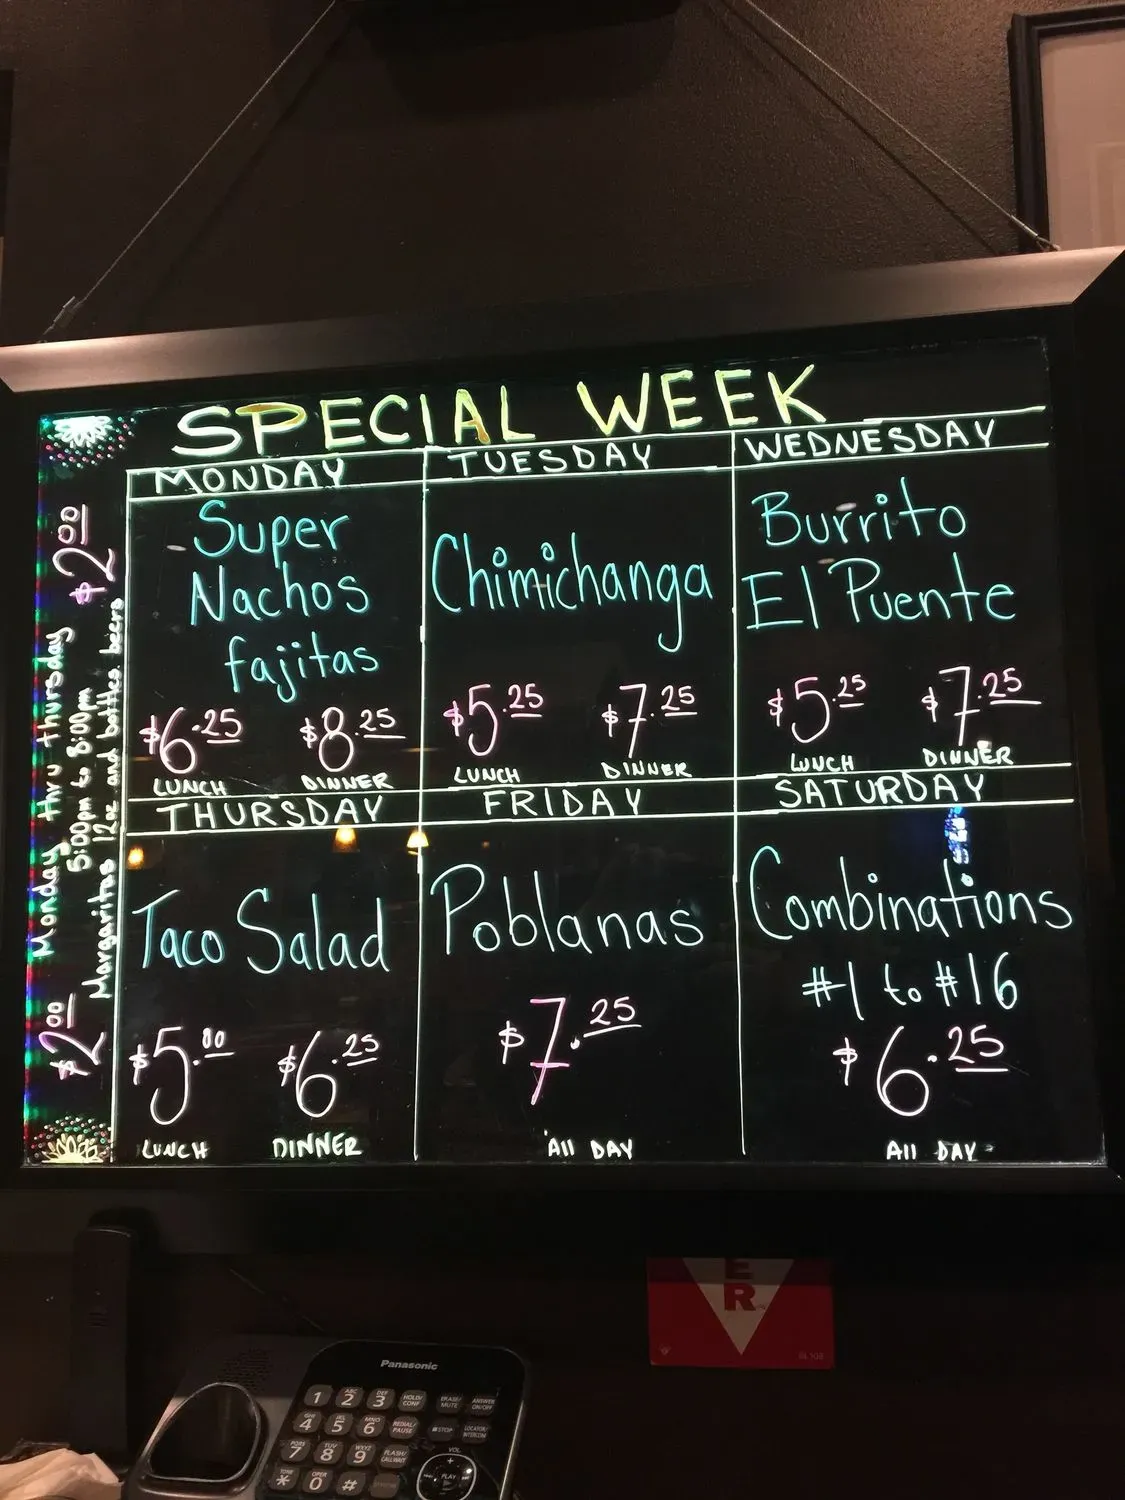 SPECIAL WEEK
MONDAY
Super
Nachos
fajitas
$6.25
LUNCH
$8.25
DINNER
TUESDAY
Chimichanga
$5.25
LUNCH
$7.25
DINNER
WEDNESDAY
Burrito
El Puente
$5.25
LUNCH
$7.25
DINNER
THURSDAY
Taco Salad
$5.00
LUNCH
$6.25
DINNER
FRIDAY
Poblanas
$7.25
All DAY
SATURDAY
Combinations
#1 to #16
$6.25
All DAY
$2.00 Monday thru thursday $2.00
5:00pm to 8:00pm
Margaritas 12oz and bottles beers
E
R
Panasonic
1 ABC 2 DEF 3 HOLD/CONF ERASE/MUTE ANSWER ON/OFF
GHI 4 JKL 5 MNO 6 REDIAL/PAUSE STOP LOCATOR/INTERCOM
PQRS 7 TUV 8 WXYZ 9 FLASH/CALL WAIT VOL
TONE * OPER 0 # PLAY